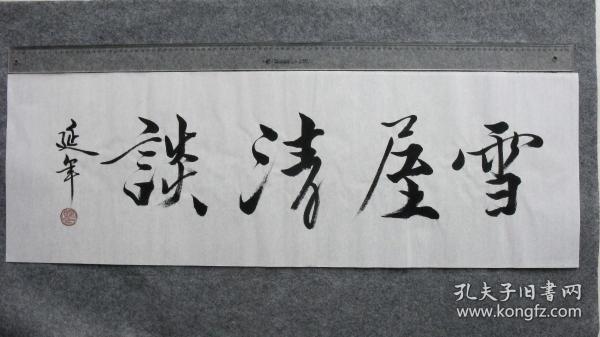 雪屋清談
延年
孔夫子旧書网
www.kongfz.com